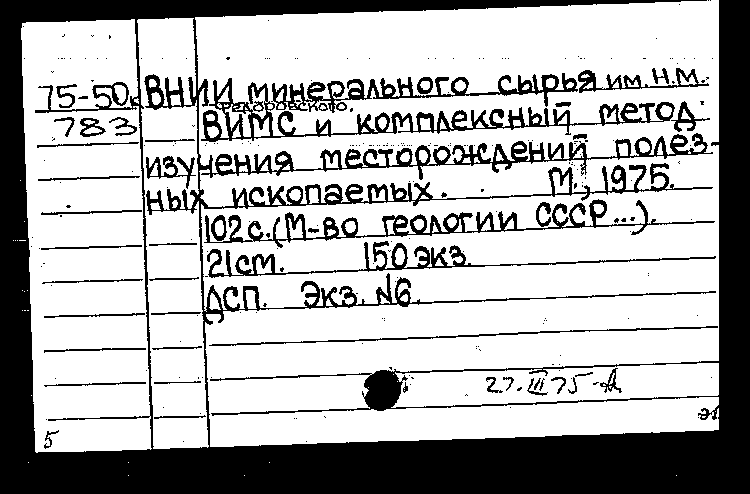 75-50к ВНИИ минерального сырья им. Н.М.
Федоровского.
783 ВИМС и комплексный метод
изучения месторождений полез-
ных ископаемых. М., 1975.
102с. (М-во геологии СССР...).
21см. 150 экз.
ДСП. Экз. №6.
27.III 75
5